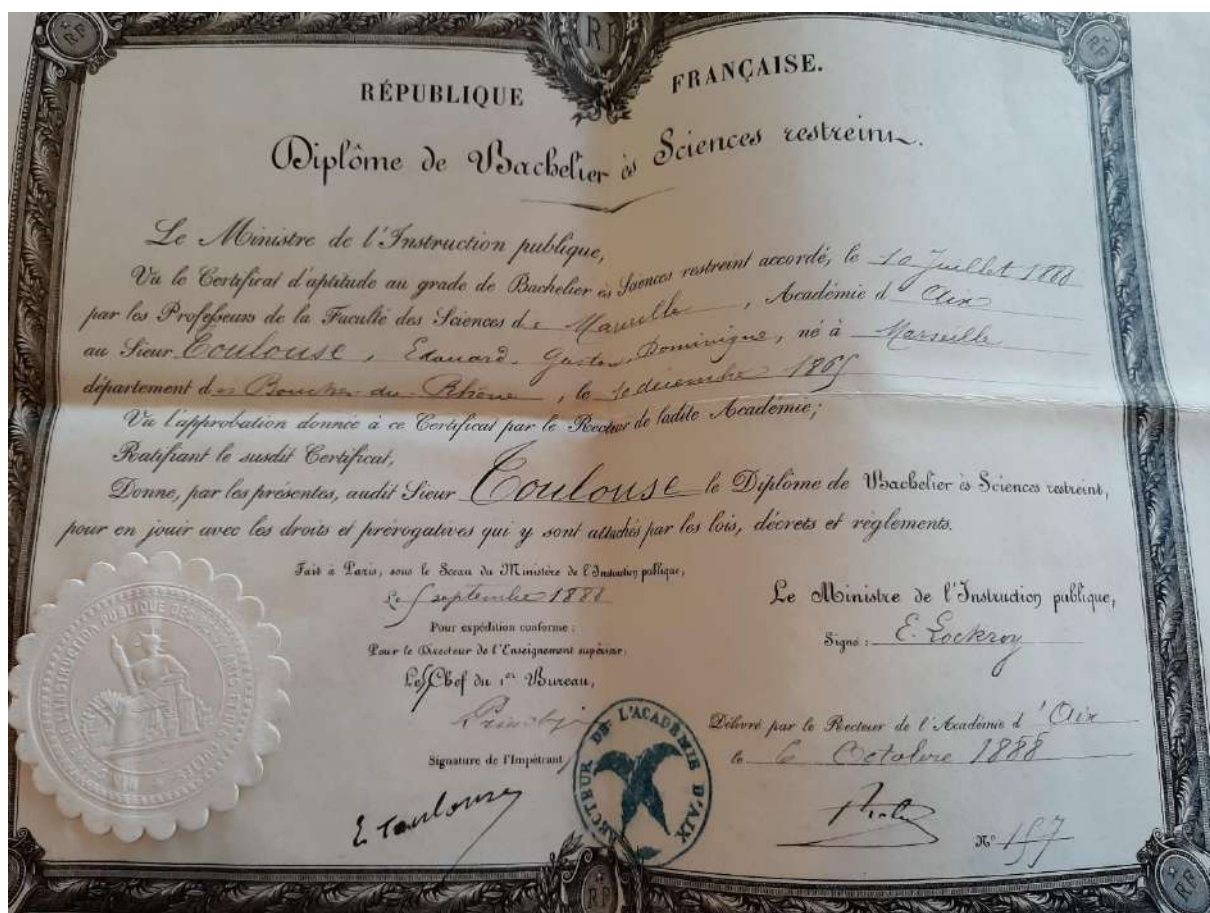 RF
RF
RF
RÉPUBLIQUE FRANÇAISE.
Diplôme de Bachelier ès Sciences restreint.
Le Ministre de l'Instruction publique,
Vu le Certificat d'aptitude au grade de Bachelier ès Sciences restreint accordé, le 10 Juillet 1888
par les Professeurs de la Faculté des Sciences de Marseille, Académie d'Aix
au Sieur Toulouse, Edouard Gaston Dominique, né à Marseille
département des Bouches-du-Rhône, le 10 décembre 1865
Vu l'approbation donnée à ce Certificat par le Recteur de ladite Académie;
Ratifiant le susdit Certificat,
Donne, par les présentes, audit Sieur Toulouse le Diplôme de Bachelier ès Sciences restreint,
pour en jouir avec les droits et prérogatives qui y sont attachés par les lois, décrets et règlements.
Fait à Paris, sous le Sceau du Ministère de l'Instruction publique,
Le 5 septembre 1888
Pour expédition conforme:
Pour le Directeur de l'Enseignement supérieur:
Le Chef du 1er Bureau,
Signature de l'Impétrant
E Toulouse
Le Ministre de l'Instruction publique,
Signé: E. Lockroy
Délivré par le Recteur de l'Académie d'Aix
le 6 Octobre 1888
N° 157
RECTEUR DE L'ACADÉMIE D'AIX
INSTRUCTION PUBLIQUE DES BEAUX ARTS
RF
RF